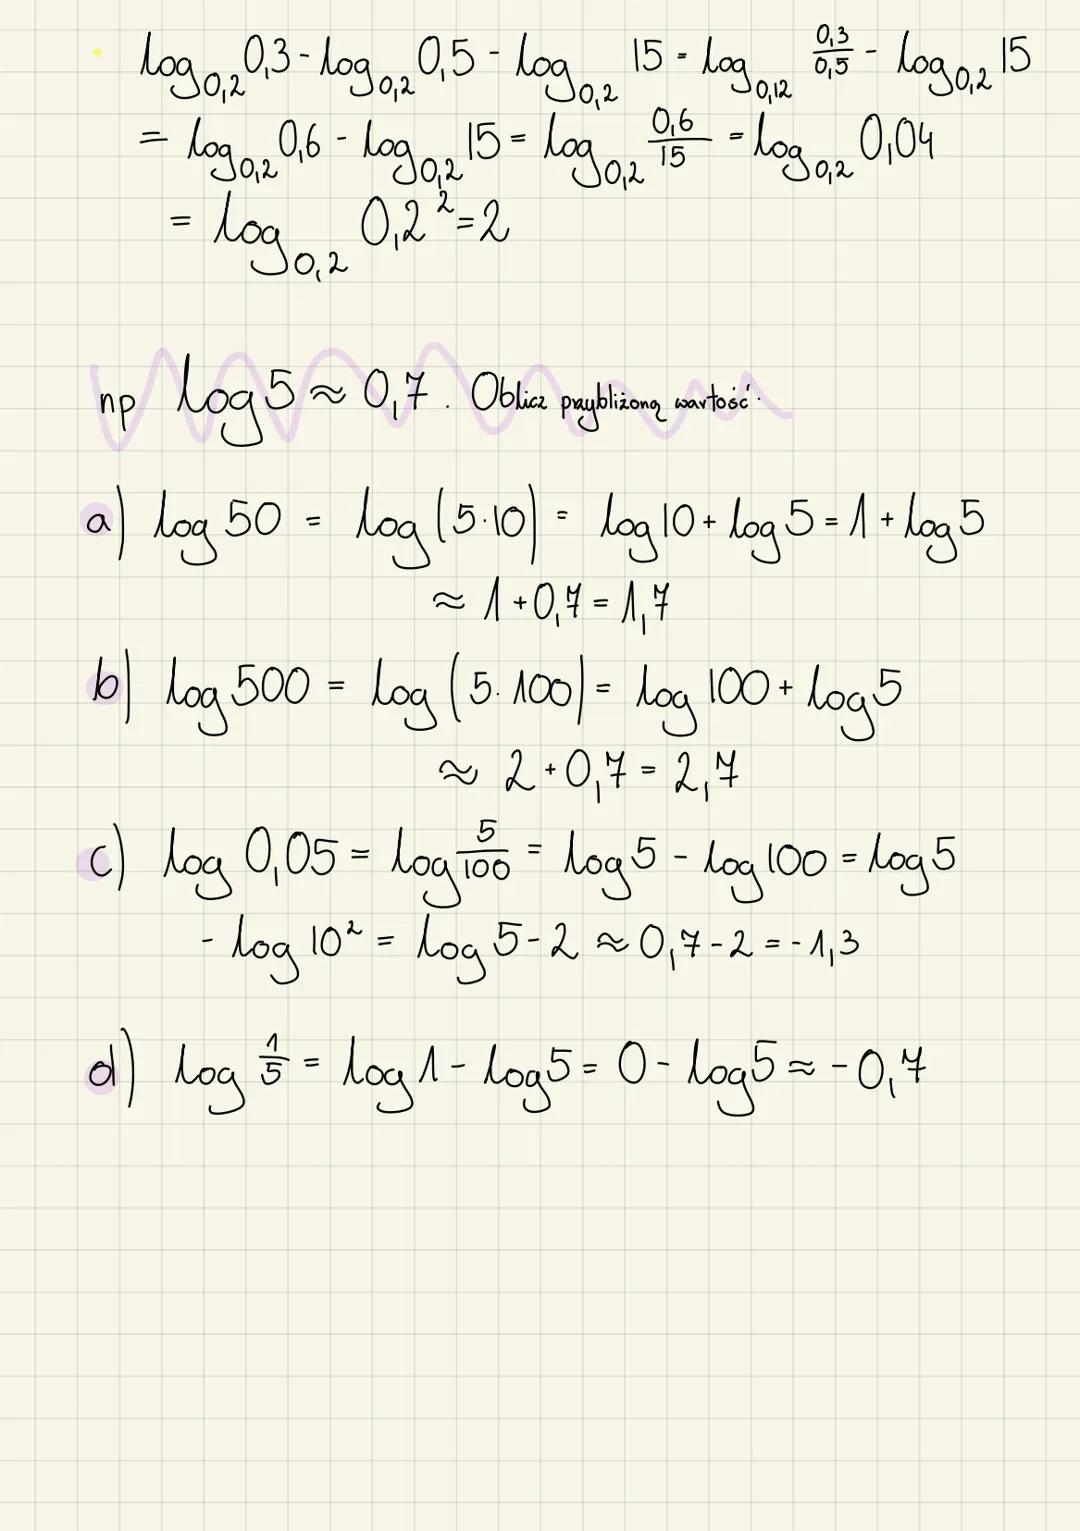 log₀,₂ 0,3 - log₀,₂ 0,5 - log₀,₂ 15 = log₀,₁₂ 0,3/0,5 - log₀,₂ 15
= log₀,₂ 0,6 - log₀,₂ 15 = log₀,₂ 0,6/15 = log₀,₂ 0,04
= log₀,₂ 0,2² = 2
np log 5 ≈ 0,7. Oblicz przybliżoną wartość.
a) log 50 = log (5·10) = log 10 + log 5 = 1 + log 5
≈ 1 + 0,7 = 1,7
b) log 500 = log (5·100) = log 100 + log 5
≈ 2 + 0,7 = 2,7
c) log 0,05 = log 5/100 = log 5 - log 100 = log 5
- log 10² = log 5 - 2 ≈ 0,7 - 2 = -1,3
d) log 1/5 = log 1 - log 5 = 0 - log 5 ≈ -0,7